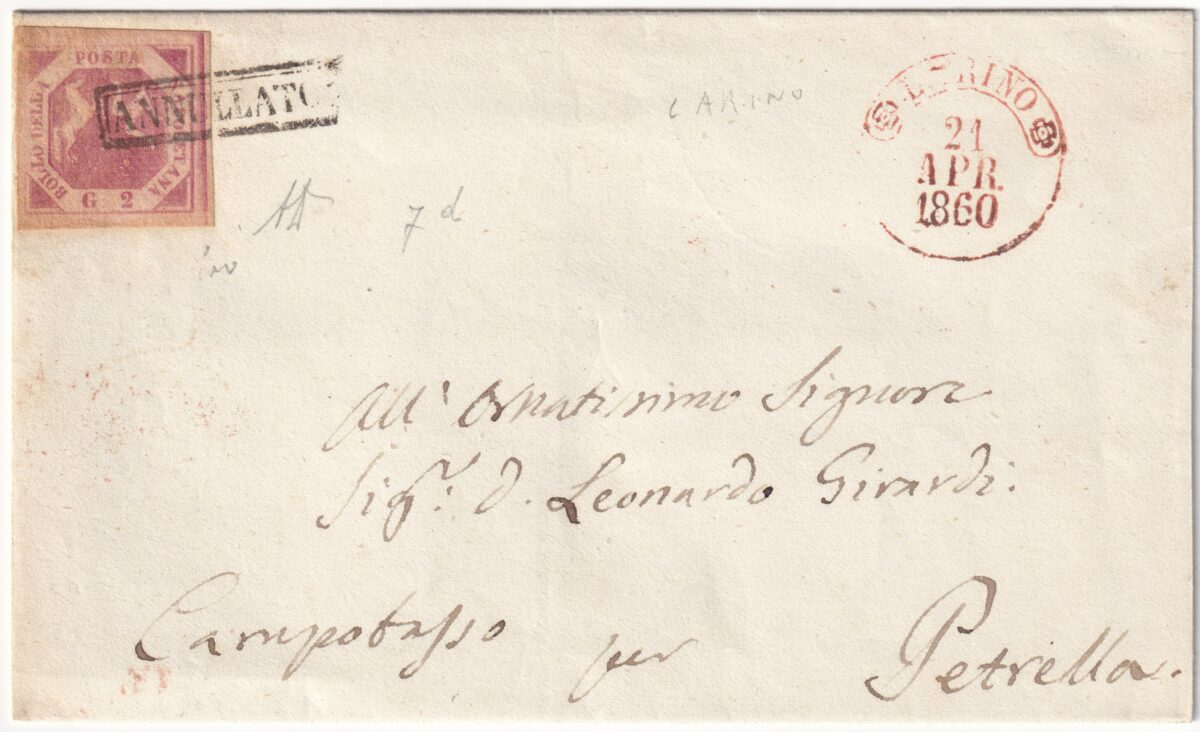 POSTA
BOLLO DELLA
G 2
ANNULLATO
LARINO
21
APR.
1860
LARINO
7 d
All' Ornatissimo Signore
Sigr. D. Leonardo Girardi.
Campobasso per Petrella.